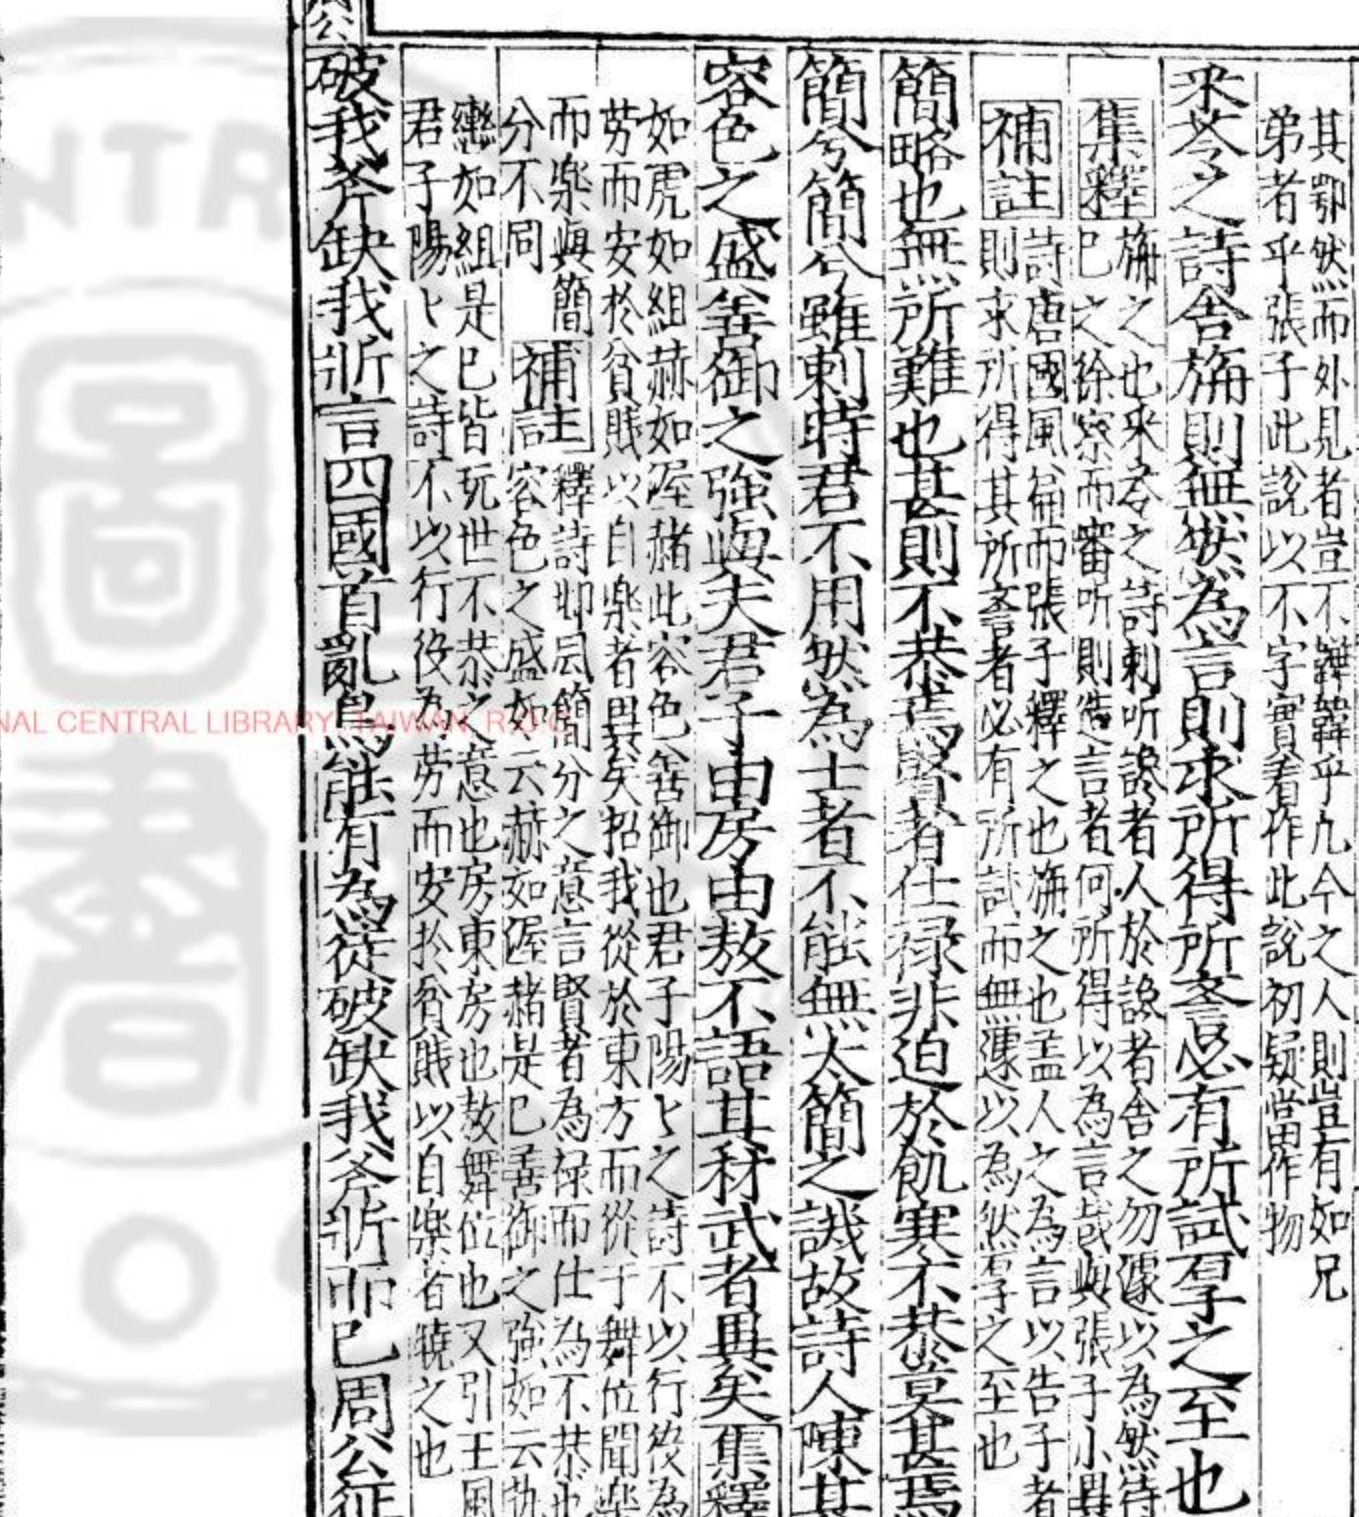 其鄂然而外見者豈不韡韡乎凡今之人則豈有如兄
弟者乎張子此說以不字實看作此說初疑當作物
采苓之詩舍旃則無然為言則求所得所譽必有所試厚之至也
集釋旃之也采苓之詩刺听讒者人於讒者舍之勿遽以為然待
巳之徐察而審听則造言者何所得以為言哉與張子小異
補註詩唐國風篇而張子釋之也旃之也盖人之為言以告子者
則求所得其所譽者必有所試而無遽以為然厚之至也
簡略也無所難也甚則不恭焉賢者仕祿非迫於飢寒不恭莫甚焉
簡兮簡兮雖刺時君不用然為士者不能無太簡之譏故詩人陳其
容色之盛善御之強與夫君子由房由敖不語其材武者異矣集釋
如虎如組赫如渥赭此容色善御也君子陽ヒ之詩不以行役為
劳而安於貧賤以自樂者異矣招我從於東方而從于舞位聞樂
而樂與簡
分不同
補註釋詩邶風簡兮之意言賢者為禄而仕為不恭也
容色之盛如云赫如渥赭是巳善御之強如云執
轡如組是巳皆玩世不恭之意也房東房也敖舞位也又引王風
君子陽ヒ之詩不以行役為劳而安於貧賤以自樂者曉之也
破我斧缺我斨言四國首亂烏能有為徒破缺我斧斨而巳周公征